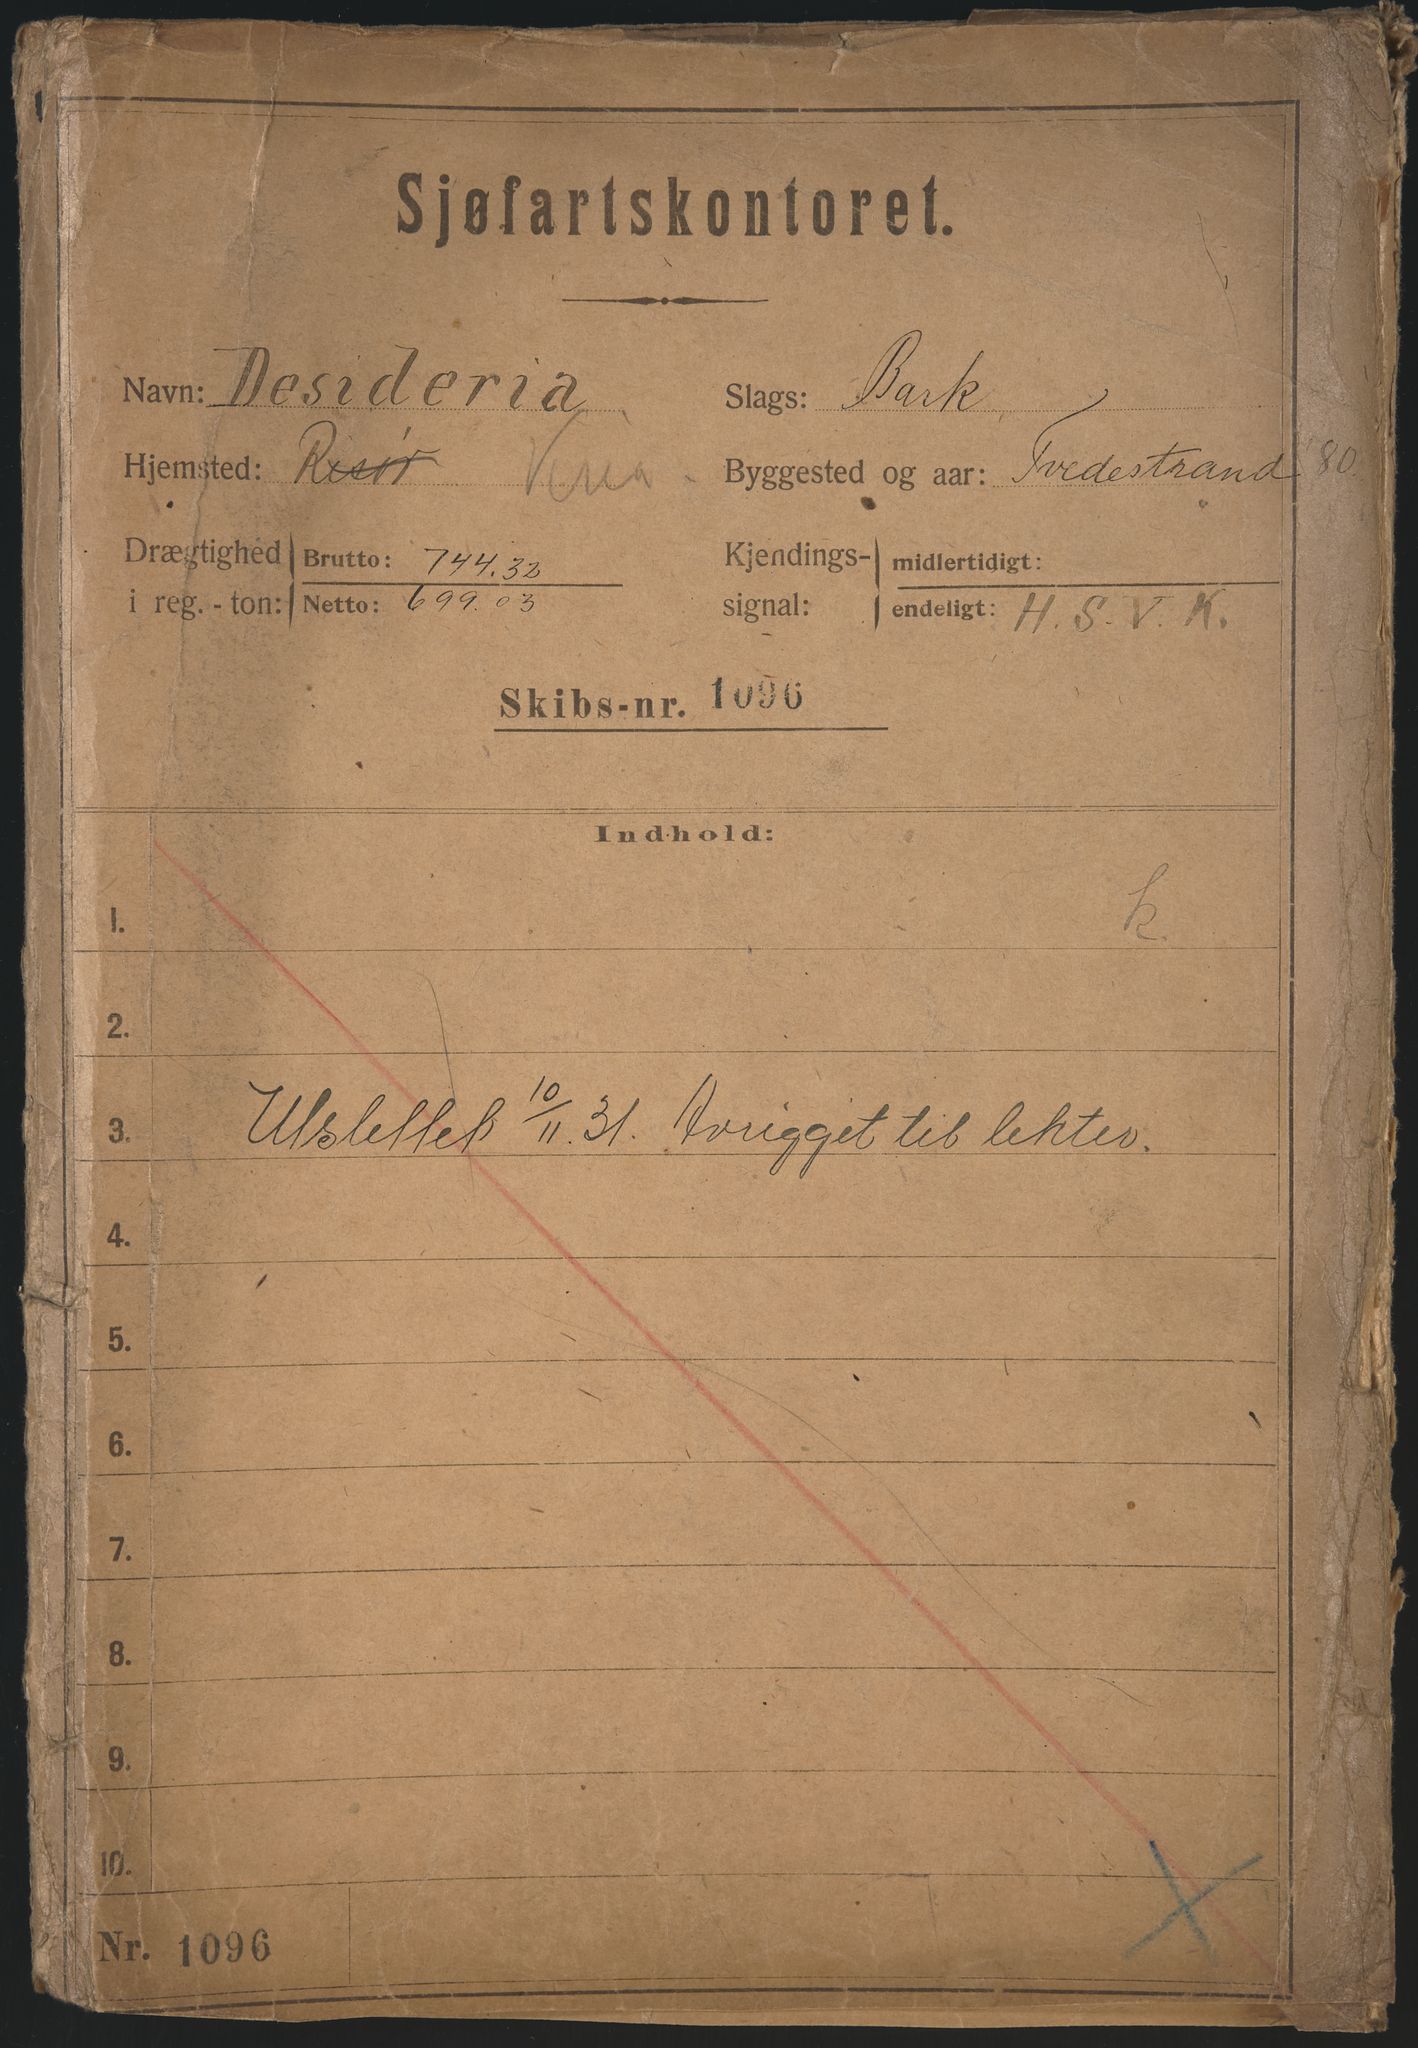 Sjøfartskontoret.
Navn: Desideria Slags: Bark
Hjemsted: Risør Byggested og aar: Tvedestrand '80.
Drægtighed i reg.-ton: Brutto: 744.32 Kjendings-signal: midlertidigt:
Netto: 699.03 endeligt: H. S. V. K.
Skibs-nr. 1096
Indhold:
1. k
2.
3. Utslettet 10/11. 31. Avrigget til lekter.
4.
5.
6.
7.
8.
9.
10.
Nr. 1096